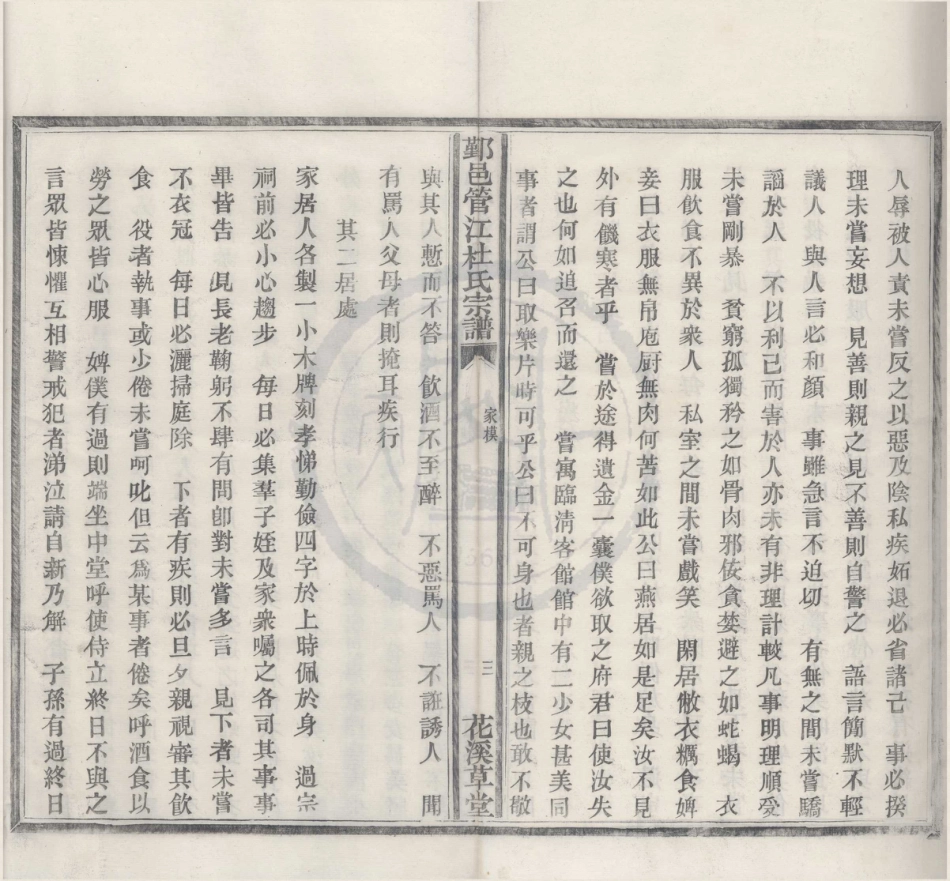 人辱被人責未嘗反之以惡及陰私疾妬退必省諸己　事必揆
理未嘗妄想　見善則親之見不善則自警之　語言簡默不輕
議人　與人言必和顏　事雖急言不迫切　有無之間未嘗驕
謟於人　不以利己而害於人亦未有非理計較凡事明理順受
未嘗剛暴　貧窮孤獨矜之如骨肉邪佞貪婪避之如蛇蝎　衣
服飲食不異於衆人　私室之間未嘗戲笑　閑居敝衣糲食婢
妾曰衣服無帛庖厨無肉何苦如此公曰燕居如是足矣汝不見
外有饑寒者乎　嘗於途得遺金一囊僕欲取之府君曰使汝失
之也何如追名而還之　嘗寓臨清客館館中有二少女甚美同
事者謂公曰取樂片時可乎公曰不可身也者親之枝也敢不敬
鄞邑管江杜氏宗譜
家模
三
花溪草堂
與其人慙而不答　飲酒不至醉　不惡罵人　不誑誘人　聞
有罵人父母者則掩耳疾行
其二居處
家居人各製一小木牌刻孝悌勤儉四字於上時佩於身　過宗
祠前必小心趨步　每日必集羣子姪及家衆囑之各司其事事
畢皆告　見長老鞠躬不肆有問卽對未嘗多言　見下者未嘗
不衣冠　每日必灑掃庭除　下者有疾則必旦夕親視審其飲
食　役者執事或少倦未嘗呵叱但云爲某事者倦矣呼酒食以
勞之眾皆心服　婢僕有過則端坐中堂呼使侍立終日不與之
言眾皆悚懼互相警戒犯者涕泣請自新乃解　子孫有過終日